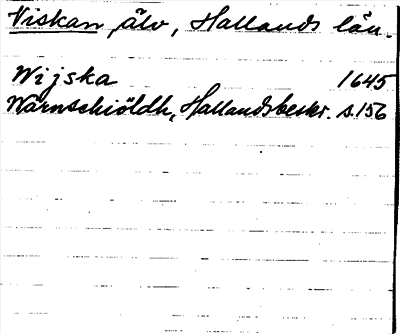 Viskan älv, Hallands län.
Wijska 1645
Warnschiöldh, Hallandsbeskr. s. 156